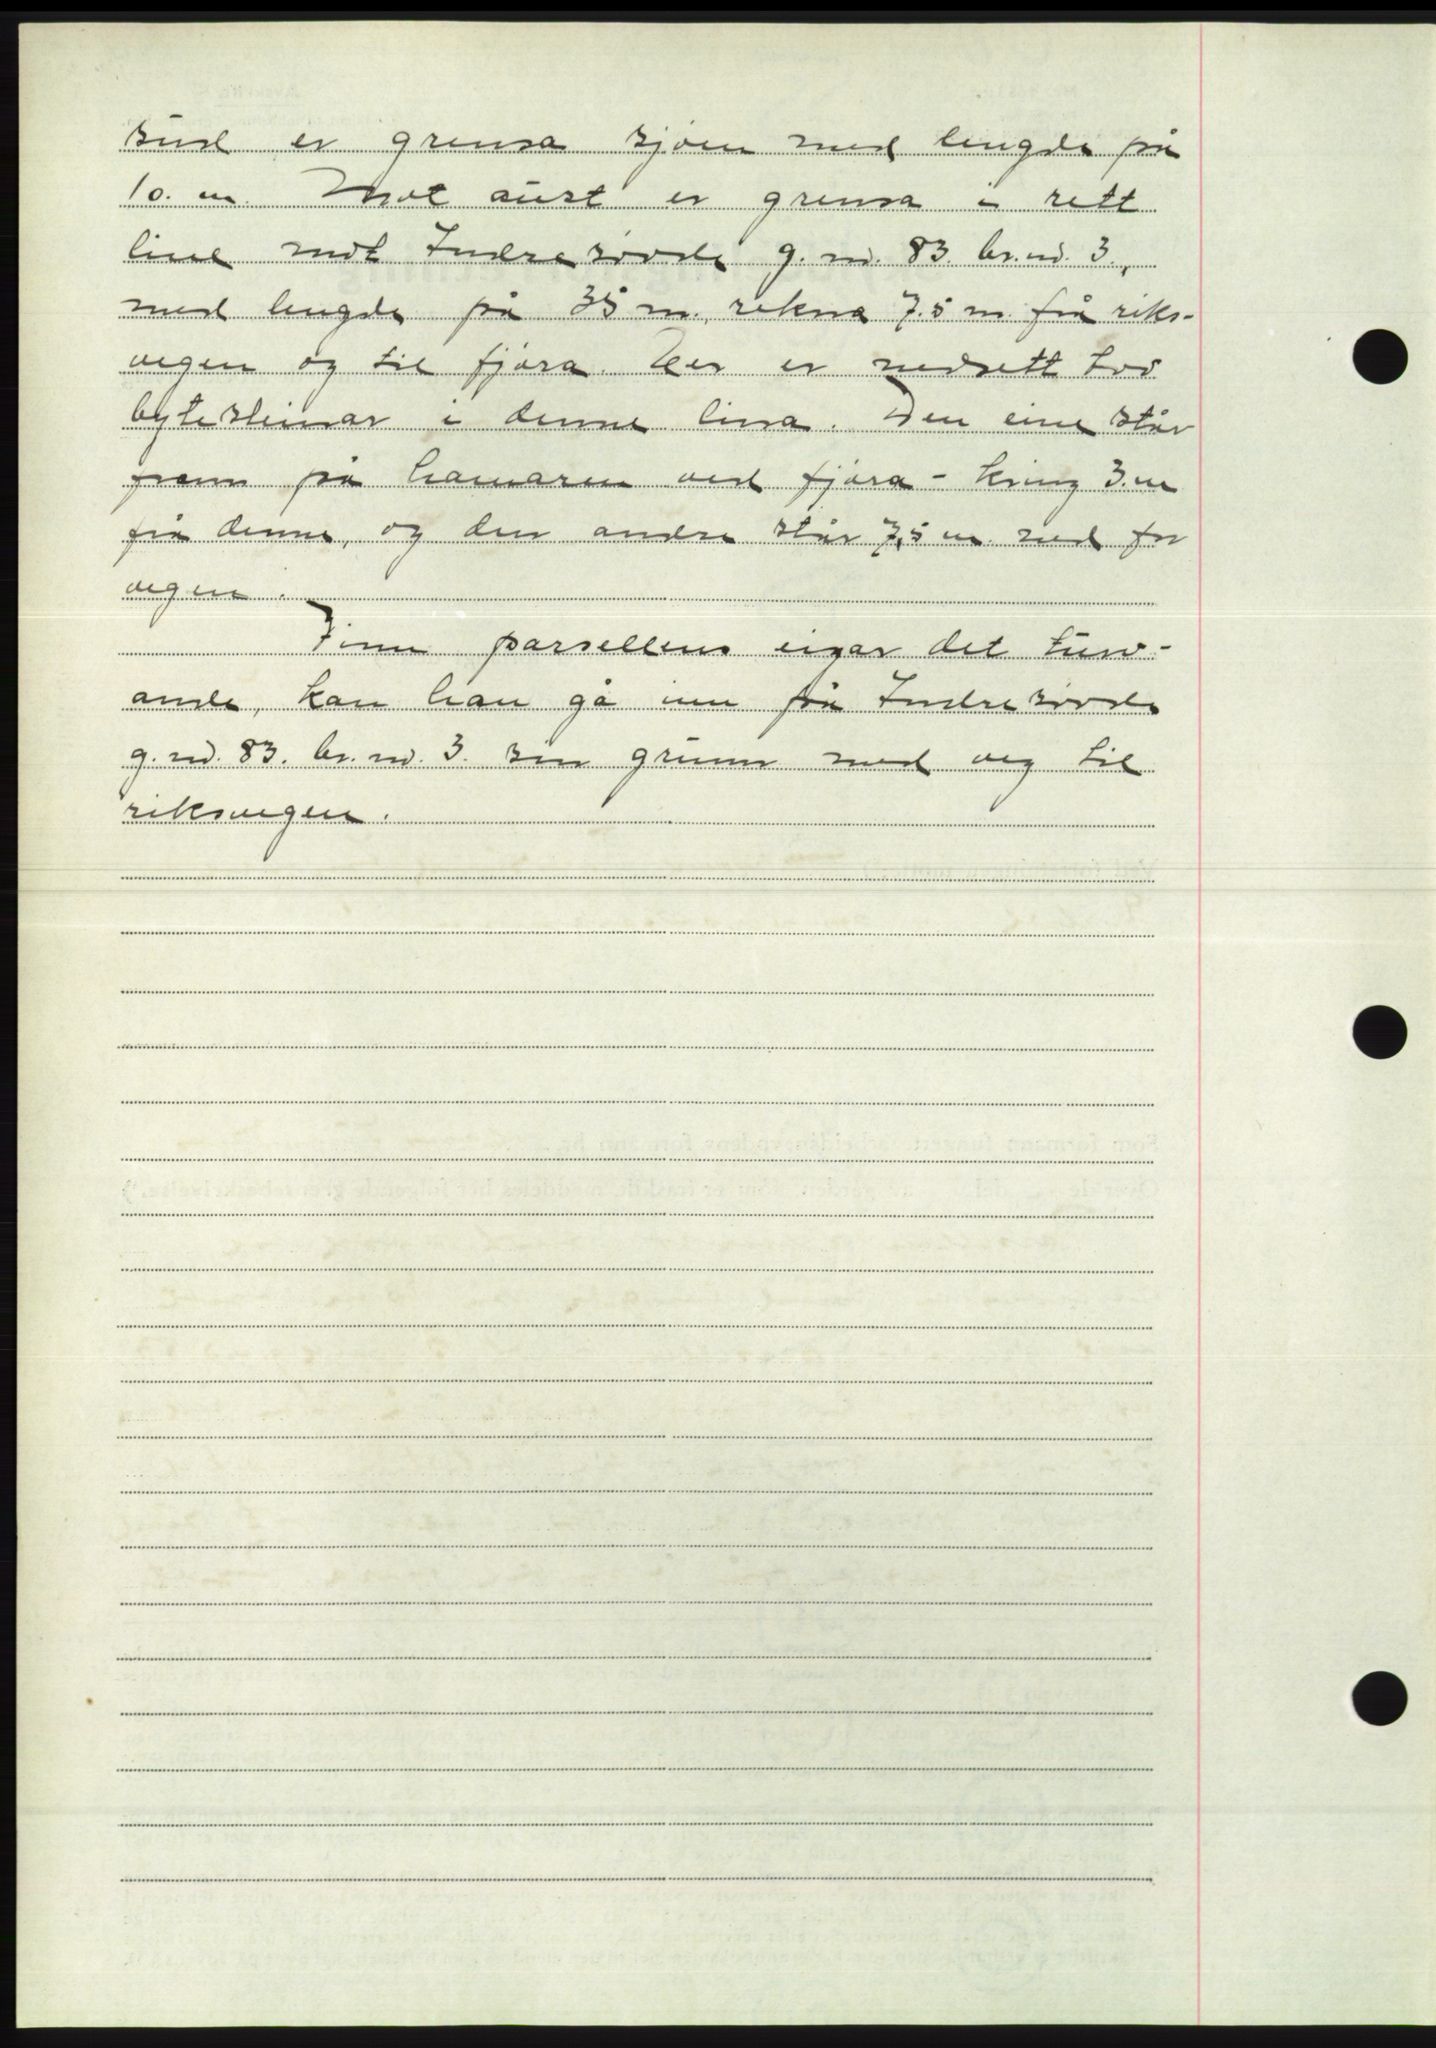 sud er grensa sjøen med lengde på
10. m. Mot aust er grensa i rett
line mot Indresøvde g. nr. 83. br. nr. 3.,
med lengde på 35 m., rekna 7.5 m. frå riks-
vegen og til fjøra. Her er nedsett tvo
bytesteinar i denne lina. Den eine står
fram på hamaren ved fjøra - kring 3. m
frå denne, og den andre står 7,5 m. ned for
vegen.
Finn parsellens eigar det turv-
ande, kan han gå inn på Indresøvde
g. nr. 83. br. nr. 3. sin grunn med veg til
riksvegen.